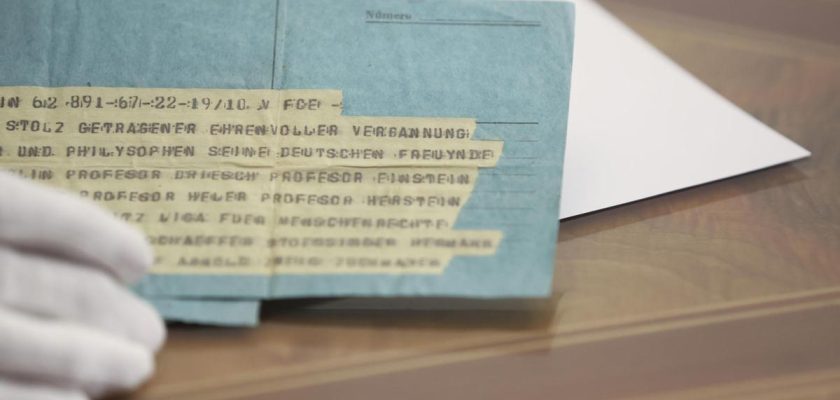 Número
IN 62 891-67-22-19/10
STOLZ GETRAGENER EHRENVOLLER VERBANNUNG
UND PHILYSOPHEN SEINE DEUTSCHEN FREUYNDE
LIN PROFESOR DRIESCH PROFESOR EINSTEIN
PROFESOR HELER PROFESOR HERSTEIN
TZ LIGA FUER MENSCHENRECHTE
SCHAEFFER STOESSINGER HERMANN
ARNOLD ZWEIG ZUCKMAYER